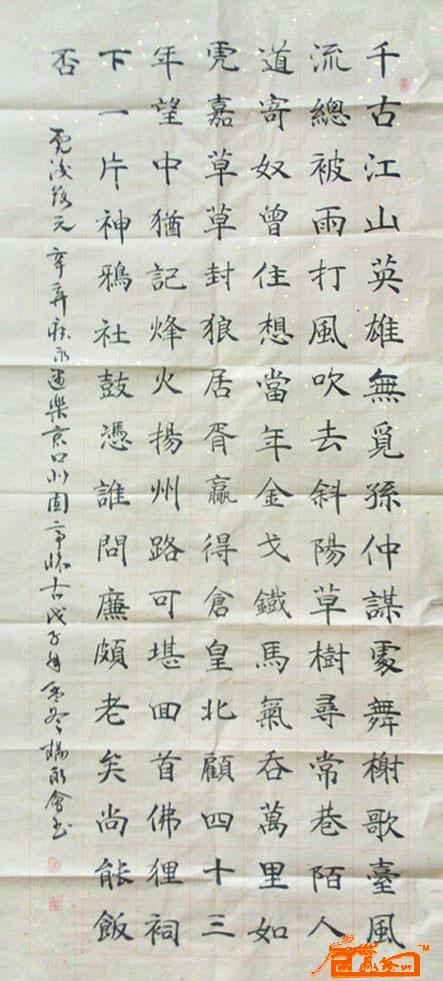 千古江山英雄無覓孫仲謀處舞榭歌臺風
流總被雨打風吹去斜陽草樹尋常巷陌人
道寄奴曾住想當年金戈鐵馬氣吞萬里如
虎嘉草草封狼居胥贏得倉皇北顧四十三
年望中猶記烽火揚州路可堪回首佛狸祠
下一片神鴉社鼓憑誰問廉頗老矣尚能飯
否 虎後落元 辛弃疾永遇樂京口北固亭懷古戊子年冬楊永會书